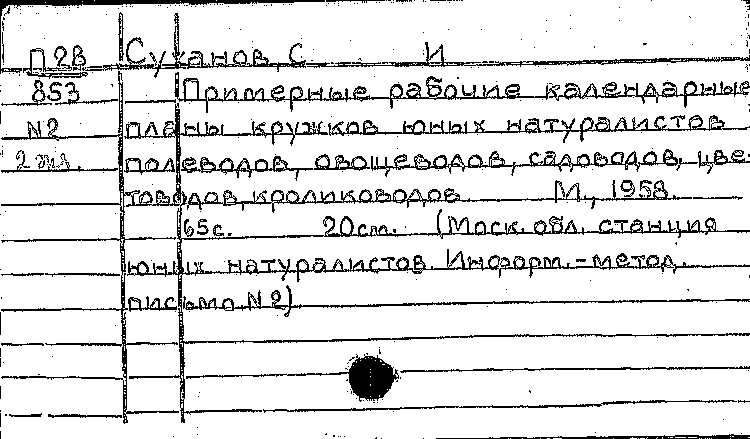 П 28 Суханов, С И
853 Примерные рабочие календарные
N2 планы кружков юных натуралистов
2 экз. полеводов, овощеводов, садоводов, цве-
товодов, кролиководов М., 1958.
65с. 20cm. (Моск. обл. станция
юных натуралистов. Информ.-метод.
письмо N2)